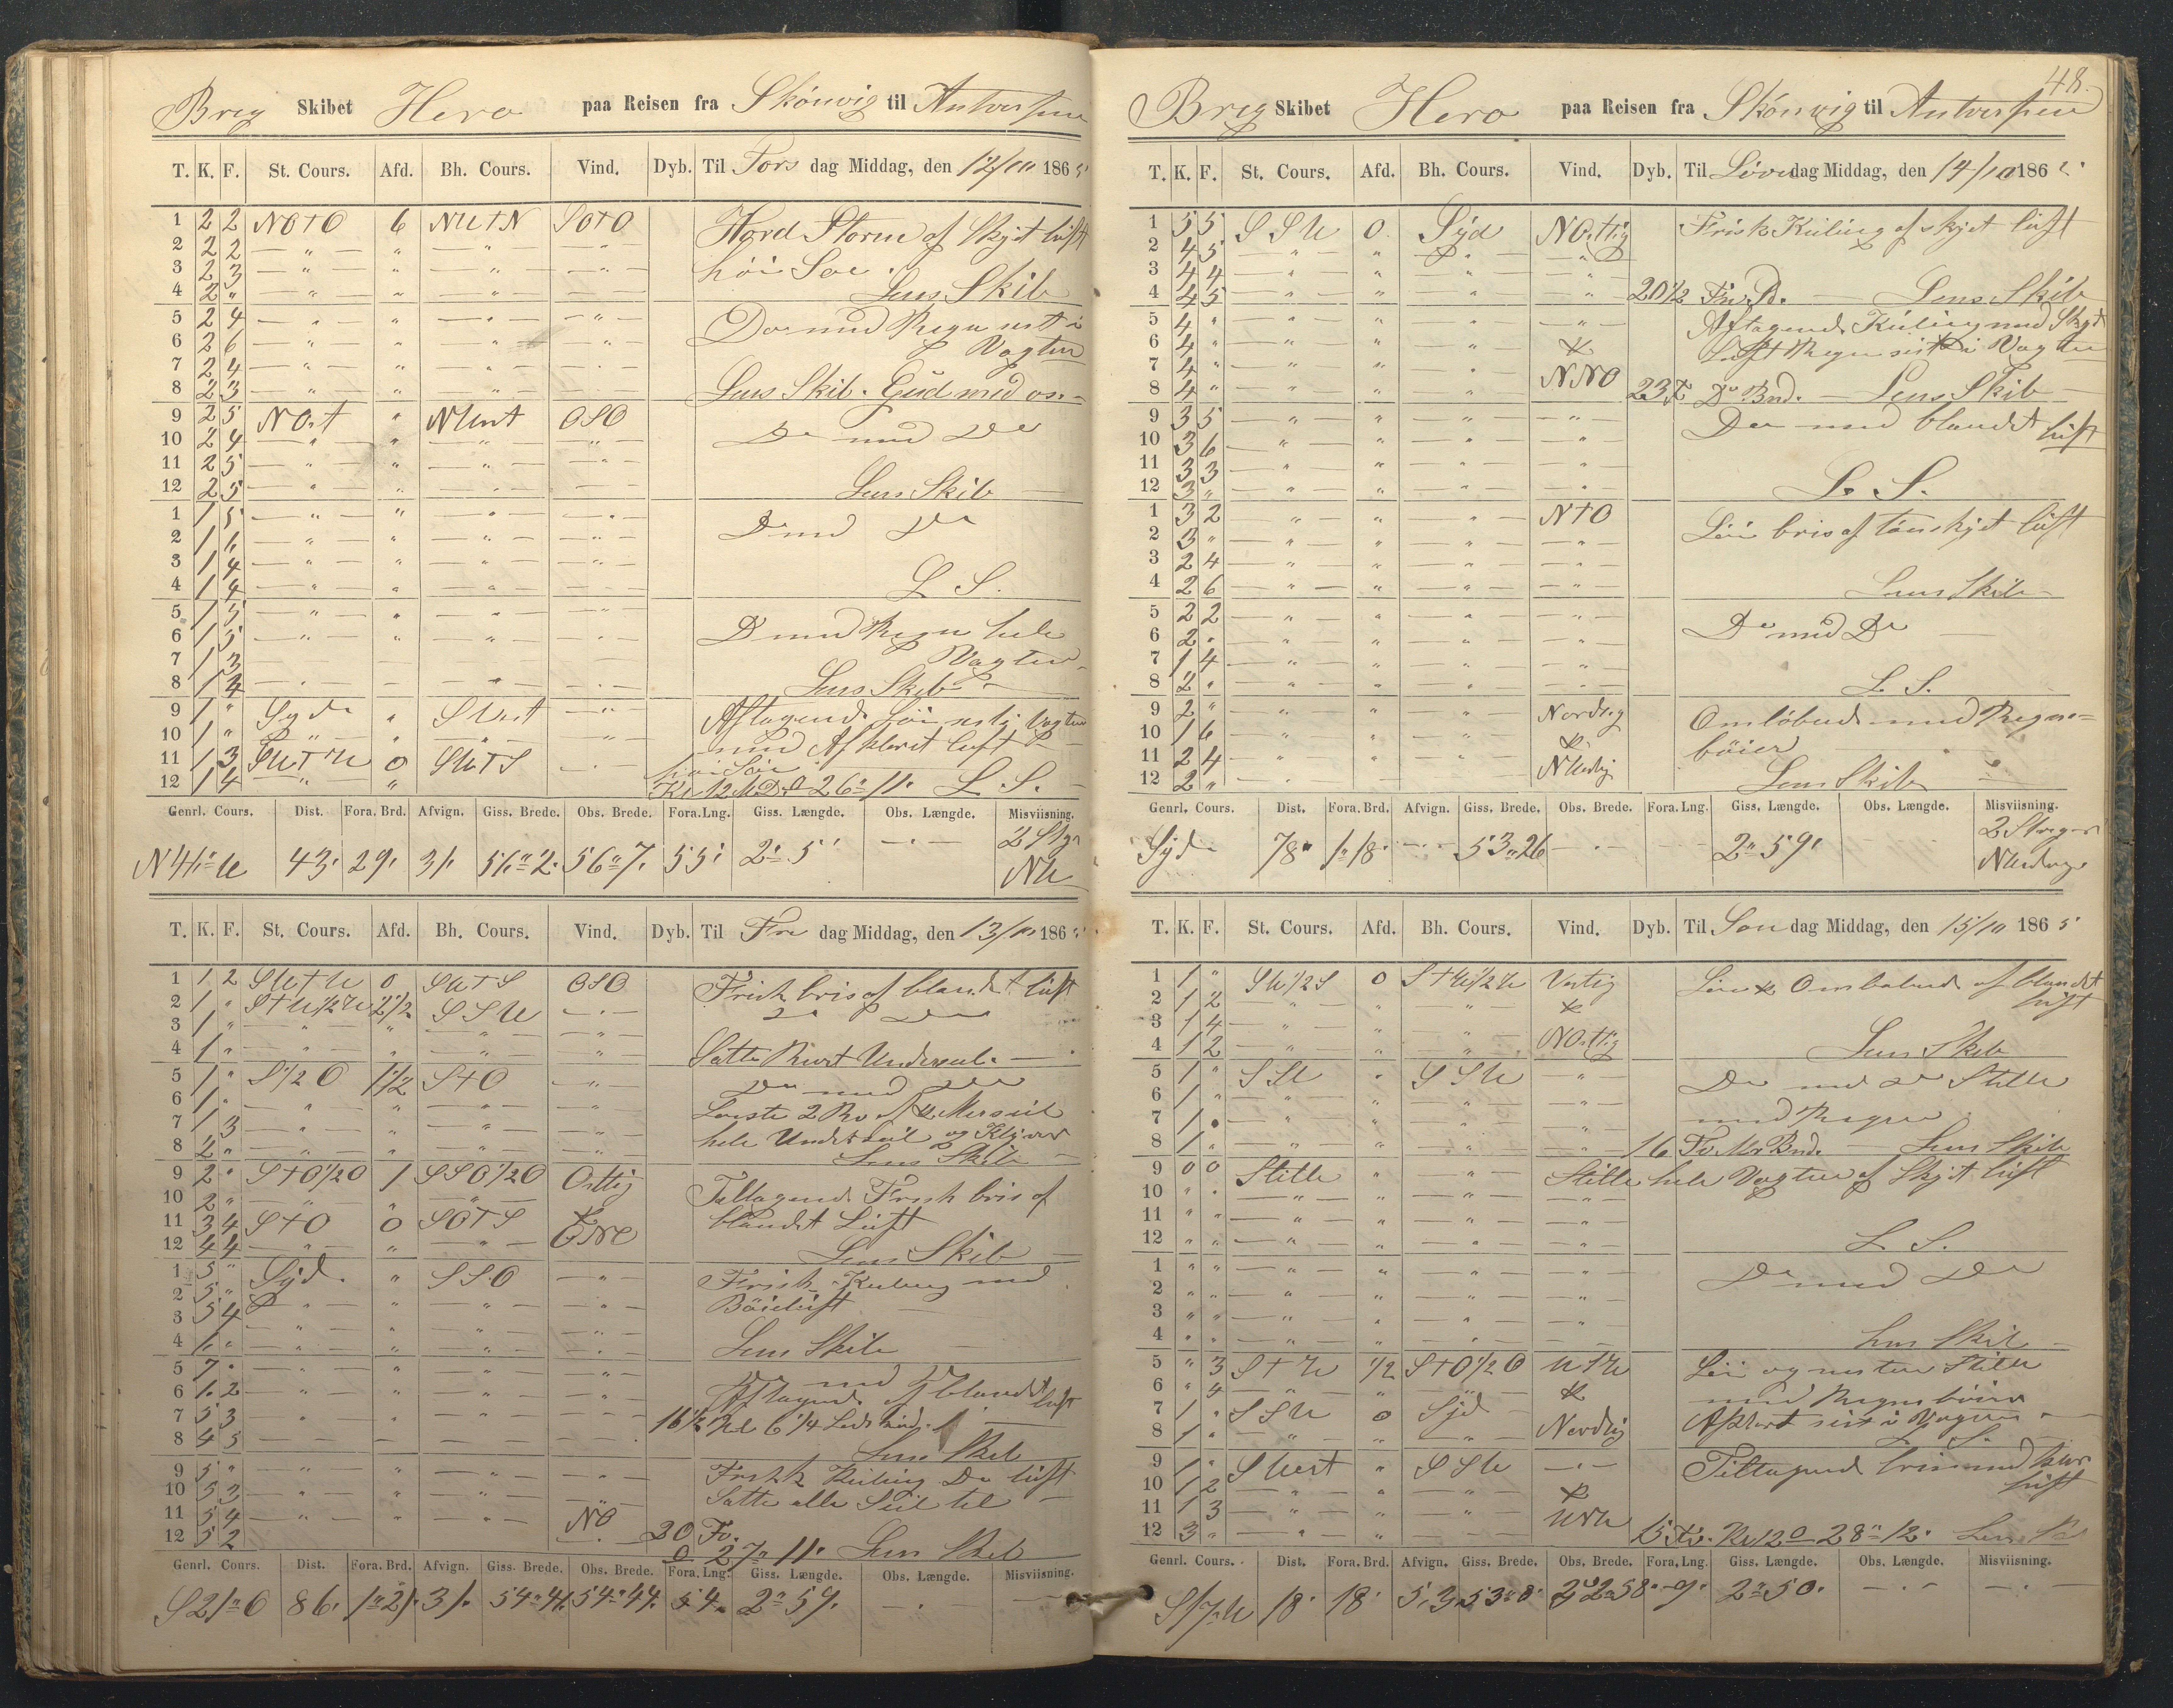 Brig Skibet Hero paa Reisen fra Skönvig til Antverpen
T. K. F. St. Cours. Afd. Bh. Cours. Vind. Dyb. Til Tors dag Middag, den 12/10 1865
1 2 2 NOtO 6 NWtN SOtO Haard Storm af Skyet luft
2 2 2 — " — " — " — — " — höi Söe.
3 2 3 — " — " — " — — " —
4 2 " — " — " — " — — " — Lens Skib
5 2 4 — " — " — " — — " — Do med Regn sist i
6 2 6 — " — " — " — — " — Vagten
7 2 4 — " — " — " — — " —
8 2 3 — " — " — " — — " — Lens Skib. Gud med os.
9 2 5 NOst " NWest OSO Do med Do
10 2 4 — " — " — " — — " —
11 2 5 — " — " — " — — " —
12 2 5 — " — " — " — — " — Lens Skib
1 1 5 — " — " — " — — " — Do med Do
2 1 6 — " — " — " — — " —
3 1 4 — " — " — " — — " —
4 1 4 — " — " — " — — " — L S.
5 1 5 — " — " — " — — " — Do med Regn hele
6 1 5 — " — " — " — — " — Vagten
7 1 3 — " — " — " — — " —
8 1 4 — " — " — " — — " — Lens Skib
9 1 " Syd " SVest — " — Aftagende Söe sist i Vagten
10 1 " — " — " — " — — " — med Afklaret luft
11 1 3 SWtW 0 SWtS — " — höi Söe
12 1 4 — " — " Kl 12 M D. 0 26" 11' L. S.
Genrl. Cours. Dist. Fora. Brd. Afvign. Giss. Brede. Obs. Brede. Fora. Lng. Giss. Længde. Obs. Længde. Misviisning.
N 46° W 43' 29' 31' 56° 2' 56° 7' 55' 2° 5' — " — 2 Stg NW
T. K. F. St. Cours. Afd. Bh. Cours. Vind. Dyb. Til Fre dag Middag, den 13/10 1865
1 1 2 SWtW 0 SWtS OSO Frisk bris af blandet luft
2 1 " StW1/2W 2 1/2 SSW — " — Do Do
3 1 " — " — " — " — — " —
4 1 " — " — " — " — — " — Satte Underseil.
5 1 " S1/2O 1 1/2 StO — " — Do med Do
6 1 " — " — " — " — — " — Löste 2 Rev af Merseil
7 1 3 — " — " — " — — " — hele Underseil og Klyver
8 2 " — " — " — " — — " — Lens Skib
9 2 " StO1/2O 1 SSO1/2O Ostlig Tiltagende Frisk bris af
10 2 " — " — " — " — & blandet Luft
11 3 4 StO 0 SOtS ONO
12 4 4 — " — " — " — Lens Skib
1 5 " Syd. " SSO — " — Frisk Kuling med
2 5 " — " — " — " — — " — Böieluft
3 5 4 — " — " — " — — " —
4 6 " — " — " — " — — " — Lens Skib
5 7 " — " — " — " — — " — Do med Do
6 6 2 — " — " — " — — " — Aftagende af blandet luft
7 5 3 — " — " — " — — " — 16 1/2 Kl 6 1/4
8 4 5 — " — " — " — — " — Lens Skib
9 5 " — " — " — " — — " — Frisk Kuling Do luft
10 5 3 — " — " — " — — " — Satte alle Seil til
11 5 4 — " — " — " — NO
12 5 2 20 Fv. 0 27" 11' Lens Skib
Genrl. Cours. Dist. Fora. Brd. Afvign. Giss. Brede. Obs. Brede. Fora. Lng. Giss. Længde. Obs. Længde. Misviisning.
S 21° O 86' 1° 21' 31' 54° 41' 54° 44' 54' 2° 59' — " — — " —
48.
Brig Skibet Hero paa Reisen fra Skönvig til Antverpen
T. K. F. St. Cours. Afd. Bh. Cours. Vind. Dyb. Til Löver dag Middag, den 14/10 1865
1 5 5 SSW 0 Syd NOstlig Frisk Kuling af skyet luft
2 4 5 — " — " — " — — " —
3 4 4 — " — " — " — — " —
4 4 5 — " — " — " — " 20 1/2 Fv. Lens Skib
5 4 " — " — " — " — — " — Aftagende Kuling med Skyet
6 4 " — " — " — " — & Luft Regn sist i Vagten
7 4 " — " — " — " — NNO
8 4 " — " — " — " 23 Fv Do Bnd. — Lens Skib
9 3 5 — " — " — " — — " — Do med blandet luft
10 3 6 — " — " — " — — " —
11 3 3 — " — " — " — — " —
12 3 " — " — " — " — — " — L. S.
1 3 2 — " — " — " — NtO Löi bris af tönskyet luft
2 3 " — " — " — " — — " —
3 2 4 — " — " — " — — " —
4 2 6 — " — " — " — — " — Lens Skib
5 2 2 — " — " — " — — " — Do med Do
6 2 " — " — " — " — — " —
7 1 4 — " — " — " — — " —
8 2 " — " — " — " — — " — L S.
9 2 " — " — " — " — Nordlig Omlöbende med Regn=
10 1 6 — " — " — " — & böier
11 2 4 — " — " — " — NWstlig
12 2 " — " — Lens Skib
Genrl. Cours. Dist. Fora. Brd. Afvign. Giss. Brede. Obs. Brede. Fora. Lng. Giss. Længde. Obs. Længde. Misviisning.
Syd 78' 1° 18' — " — 53° 26 — " — — 2° 59' 2 Streger
T. K. F. St. Cours. Afd. Bh. Cours. Vind. Dyb. Til Sön dag Middag, den 15/10 1865
1 1 " SW1/2S 0 StW1/2W Vestlig Löi & Omlöbende af blandet
2 1 2 — " — " — " — & luft
3 1 4 — " — " — " — NOstlig
4 1 2 — " — " — " Lens Skib
5 1 " SSW " SSW — " — Do med Do Stille
6 1 " — " — " — " — — " — med Regn
7 1 " — " — " — " — — " —
8 1 " — " — " — " — — " — 16 Fv. Bnd. Lens Skib
9 0 0 Stille " — " — Stille hele Vagten af Skyet luft
10 " " — " — " — " — — " —
11 " " — " — " — " — — " —
12 " " — " — " — " — — " — L S.
1 " " — " — " — " — — " — Do med Do
2 " " — " — " — " — — " —
3 " " — " — " — " — — " —
4 " " — " — " — " — — " — Lens Skib
5 " 3 StW 1/2 StO1/2O WtN Löi og nesten Stille
6 " 4 — " — " — " — & med Regnböier
7 1 " SSW 0 Syd Nordlig Afklart sist i Vagten
8 1 " — " — " — " — L S.
9 1 " SVest " SSW — " — Tiltagende bris med klar
10 1 2 — " — " — " — & luft
11 1 3 — " — " — " —
12 3 " — " — " 15 Fv. Kl 12 0 28" 12' Lens
Genrl. Cours. Dist. Fora. Brd. Afvign. Giss. Brede. Obs. Brede. Fora. Lng. Giss. Længde. Obs. Længde. Misviisning.
S 17° W 18' 18' 5' 53° 8' 58' 9' 2° 50' — " — — " —